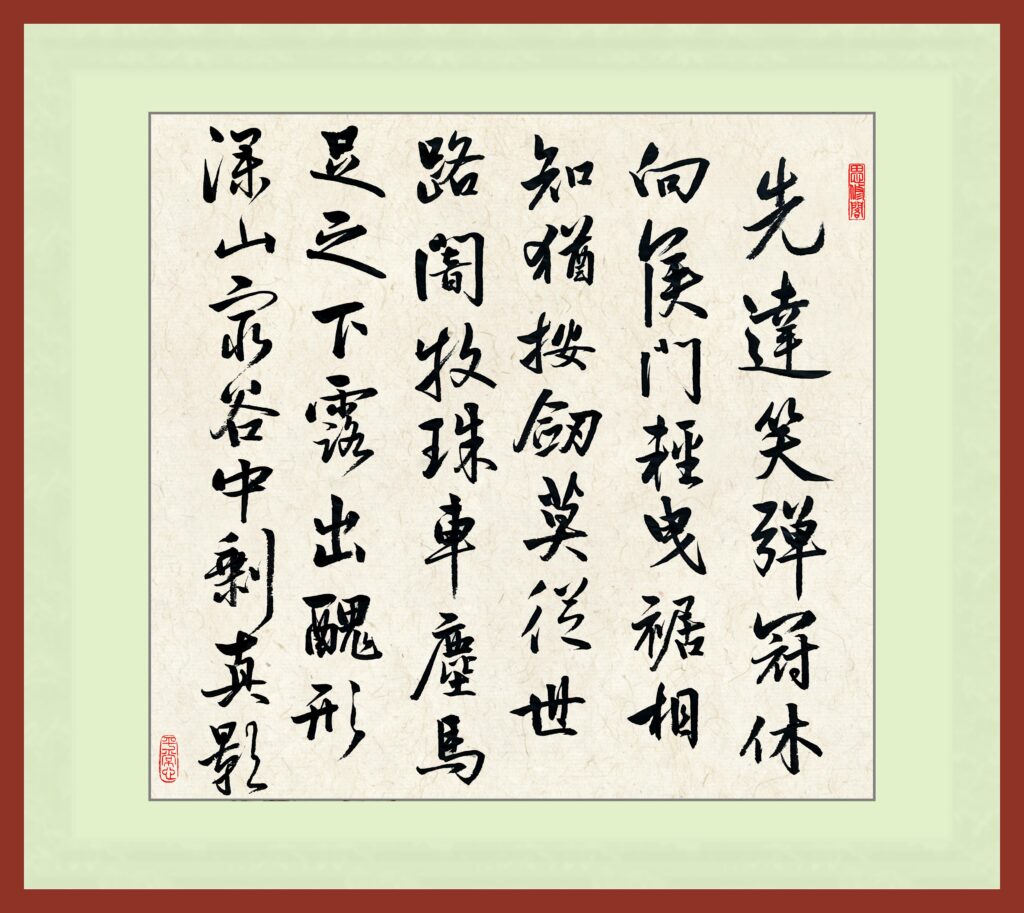 先達笑弾冠休
向侯門輕曳裾相
知猶按劒莫從世
路闇投珠車塵馬
足之下露出醜形
深山穷谷中剩真影
平常心